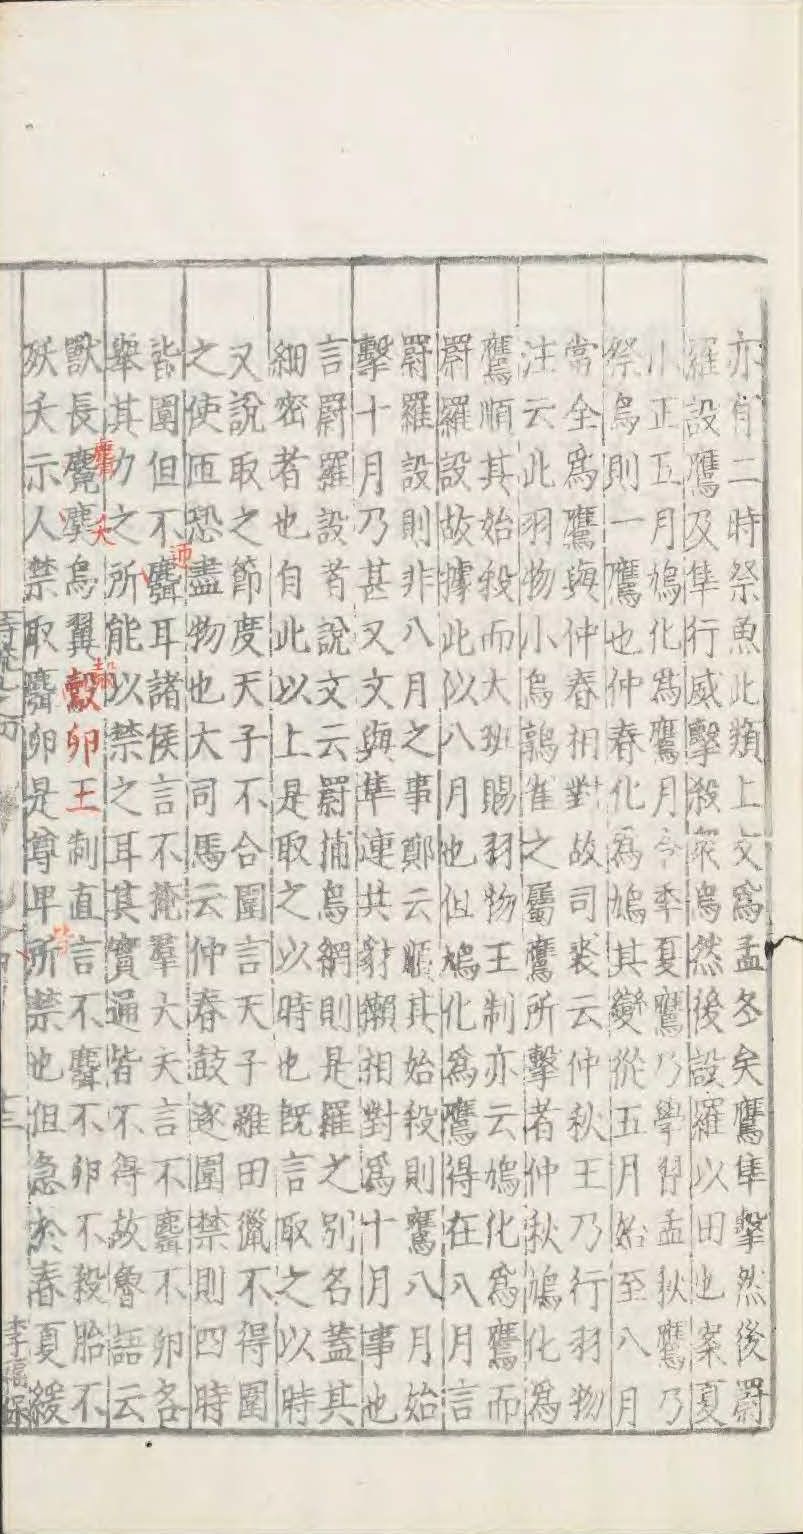 亦有二時祭魚此類上文爲孟冬矣鷹隼擊然後罻
羅設鷹及隼行威擊殺衆鳥然後設羅以田也案夏
小正五月鳩化爲鷹月令季夏鷹乃學習孟秋鷹乃
祭鳥則一鷹也仲春化爲鳩其變從五月始至八月
常全爲鷹與仲春相對故司裘云仲秋王乃行羽物
注云此羽物小鳥鶉雀之屬鷹所擊者仲秋鳩化爲
鷹順其始殺而大班賜羽物王制亦云鳩化爲鷹而
罻羅設故據此以八月也但鳩化爲鷹得在八月言
罻羅設則非八月之事鄭云順其始殺則鷹八月始
擊十月乃甚又文與隼連共豺獺相對爲十月事也
言罻羅設者說文云罻捕鳥網則是羅之別名蓋其
細密者也自此以上是取之以時也旣言取之以時
又說取之節度天子不合圍言天子雖田獵不得圍
之使匝恐盡物也大司馬云仲春鼓遂圍禁則四時
皆圍但不麛耳諸侯言不掩羣大夫言不麛不卵各
舉其力之所能以禁之耳其實通皆不得故魯語云
獸長麑麌鳥翼鷇卵王制直言不麛不卵不殺胎不
殀夭示人禁取麛卵是尊卑所禁也但急於春夏緩
麛
夭
迊
鷇
十三
李福保